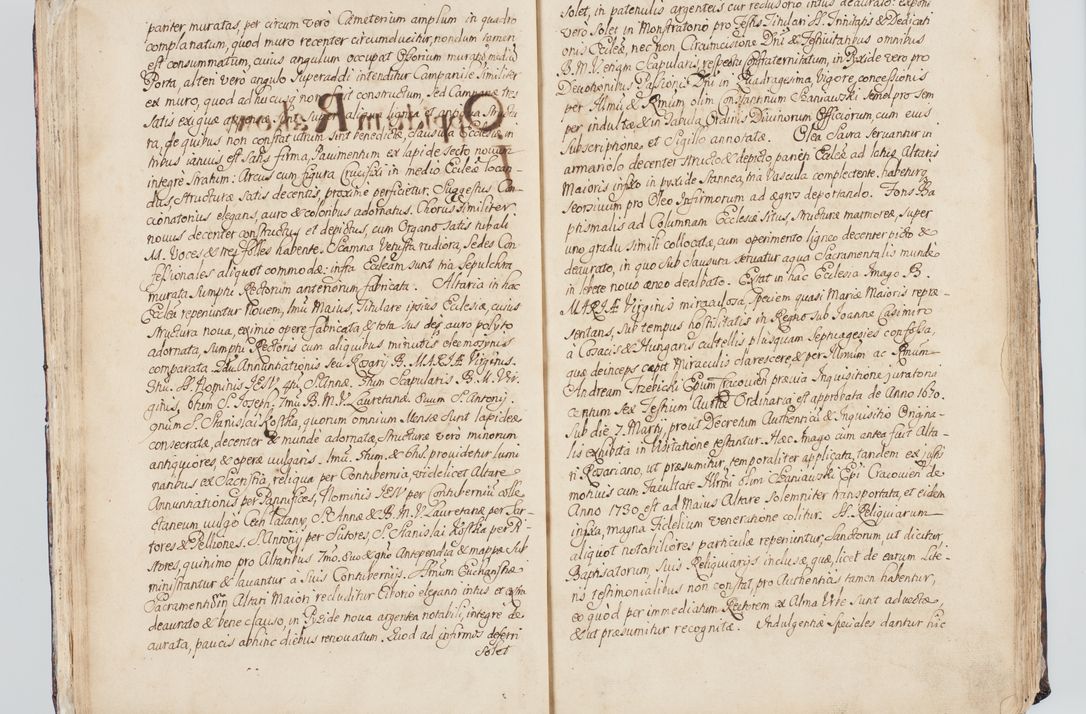 pariter muratas, per circum verò Cæmeterium amplum in quadro
complanatum, quod muro recenter circumducitur, nondum tamen
est consummatum, cuius angulum occupat Ossorium muratum, mediũ
Porta, alteri verò angulo superaddi intenditur Campanile similiter
ex muro, quod ad huc usq; non fuit constructum. Sed Campanæ tres
satis exiguæ
ra, de quibus non constat utrum sint benedictæ, clausura Ecclesiæ in
tribus ianuis est satis firma, Pavimentum ex lapide secto noviter
integrè stratum: Arcus cum figura Crucifixi in medio Ecclesiæ locan-
dus, structuræ satis decentis, proximè perficietur. Suggestus Con-
cionatorius elegans, auro & coloribus adornatus. Chorus similiter
novus decenter constructus et depictus, cum Organo satis
11. Voces & tres folles habente. Scamna vetusta rudiora, Sedes Con-
fessionales aliquot commodæ: infra Eccleam sunt tria Sepulchra
murata sumptu Rectorum anteriorum fabricata. Altaria in hac
Ecclea reperiuntur Novem, 1mũ Maius, Titulare ipsius Ecclesiæ, cuius
structura nova, eximio opere fabricata & tota sus des auro polyto
adornata, sumptu Rectoris cum aliquibus minutis eleemosynis
comparata. 2dũ Annuntiationis seu Rosarij B. MARIÆ Virginis.
3tiũ. SS. Nominis IESU, 4tũ. S. Annæ. 5tum Scapularis B. M. Vir-
ginis, 6tum S. Joseph. 7mũ B. M. V. Lauretanæ. 8uum S. Antonij.
9num S. Stanislai Kostka, quorum omnium Mensæ sunt lapideæ
consecratæ, decenter & mundè adornatæ, structuræ verò minorum
antiquiores & operæ vulgaris. 1mũ. 5tum. & 6tus providetur lumi
naribus ex Sacristia, reliqua per Contubernia, videlicet Altare
Annuntiationis per Pannifices, Nominis IESU per Contuberniũ colle
ctaneum vulgo Cech Tatany, S. Annæ & B. M. V. Lauretanæ per Sar-
tores & Pelliones. S. Antonij per Sutores, S. Stanislai Kostka per Pi-
stores, quinimo pro Altaribus 7mo. 8uo & 9no Antependia & mappæ sub
ministrantur & lavantur a suis Contubernijs. SSmum Eucharistiæ
Sacramentum in Altari Maiori recluditur Ciborio eleganti intus et extra
deaurato & bene clauso, in Pixide nova argentea notabili, integrè de
aurata, paucis abhinc diebus renovatum. Quod ad infirmos deferri
solet
solet, in patenulis argenteis cur reclusorio intus deaurato: exponi
verò solet in Monstratorio pro Festis Titulari SS. Trinitatis & Dedicati
onis Eccleæ, nec non Circumcisione Dni & Festivitatibus omnibus
B. M. V. etiam Scapularis, respectu Confraternitatum, in Pixide vero pro
Devotionibus Passionis Dni in Quadragesima, vigore concessionis
per Illmũ & Rmum olim Constantinum Szaniawski semel pro sem
per indultæ & in Tabula Ordinis Divinorum Officiorum cum eius
subscriptione et Sigillo annotatæ. Olea Sacra servantur in
armariolo decenter structo & depicto parieti Eccleæ ad latus Altaris
Maioris infixo in pyxide stannea, tria vascula complectente, habetur
seorsivum pro Oleo Infirmorum ad ægros deportando. Fons Ba
ptismalis ad Columnam Ecclesiæ situs, structuræ marmoreæ, super
uno gradu simili collocatæ, cum operimento ligneo decenter picto &
deaurato, in quo sub clausura servatur aqua Sacramentalis mundè
in lebete novo æneo dealbato. Extat in hac Ecclesia Imago B.
MARIÆ Virginis miraculosa, speciem quasi Mariæ Maioris repræ-
sentans, sub tempus hostilitatis in Regno sub Joanne Casimiro
â Cosacis & Hungaris cultellis plusquam septuagesies confossa,
quæ deinceps cæpit Miraculis clarescere, & per Illmum ac Rmum
Andream Trzebicki Epum Cracovien præviâ Inquisitione juratoria
centum sex Testium Auctte Ordinaria est approbata de Anno 1670.
sub die 7. Martij prout Decretum Authenticũ & Inquisitio Origina-
lis exhibita in Visitatione testantur. Hæc Imago cum antea fuit Alta-
ri Rosariano, ut præsumitur, temporaliter applicata, tandem ex justis
motivis cum Facultate Illrmi olim Szaniawski Epi Cracovien de
Anno 1730. est ad Maius Altare solemniter transportata, et eidem
infixa, magna Fidelium veneratione colitur. SS. Reliquiarum
aliquot notabiliores particulæ reperiuntur, Sanctorum ut dicitur
Baptisatorum, suis Reliquiarijs inclusæ, quæ, licet de earum lite-
ris testimonialibus non constat, pro Authenticis tamen habentur,
ex quòd per immediatum Rectorem ex Alma Urbe sunt advectæ,
& ut præsumitur recognitæ. Indulgentiæ speciales dantur hic